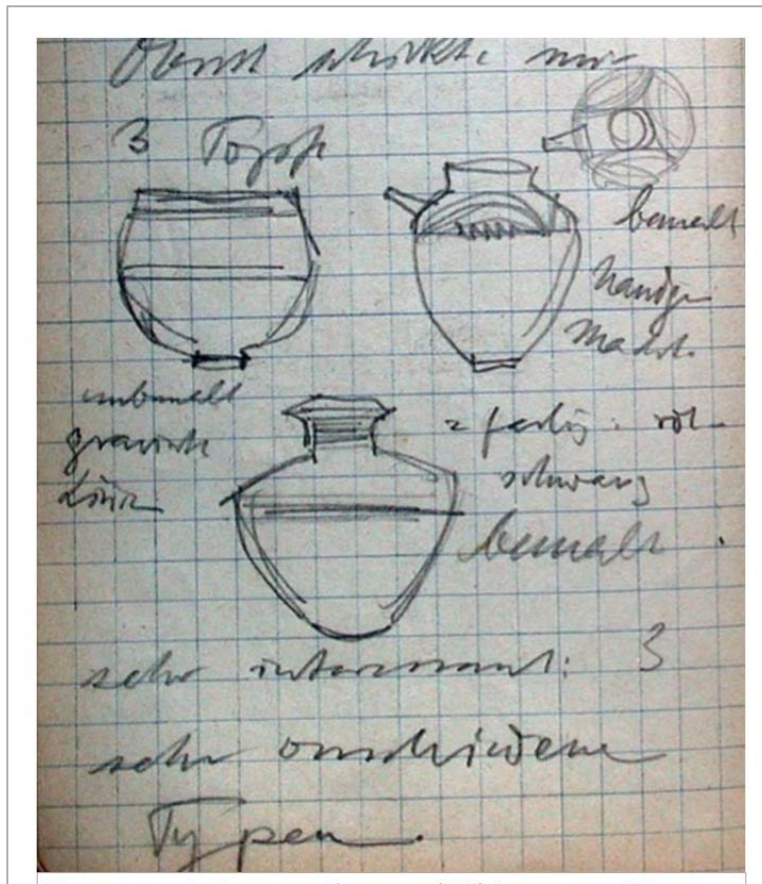 schickte mir
3 Töpfe
bemalt
handge
macht.
unbemalt
gravierte
Linie
2 farbig: rot
schwarz
bemalt.
sehr interessant: 3
sehr verschiedene
Typen.